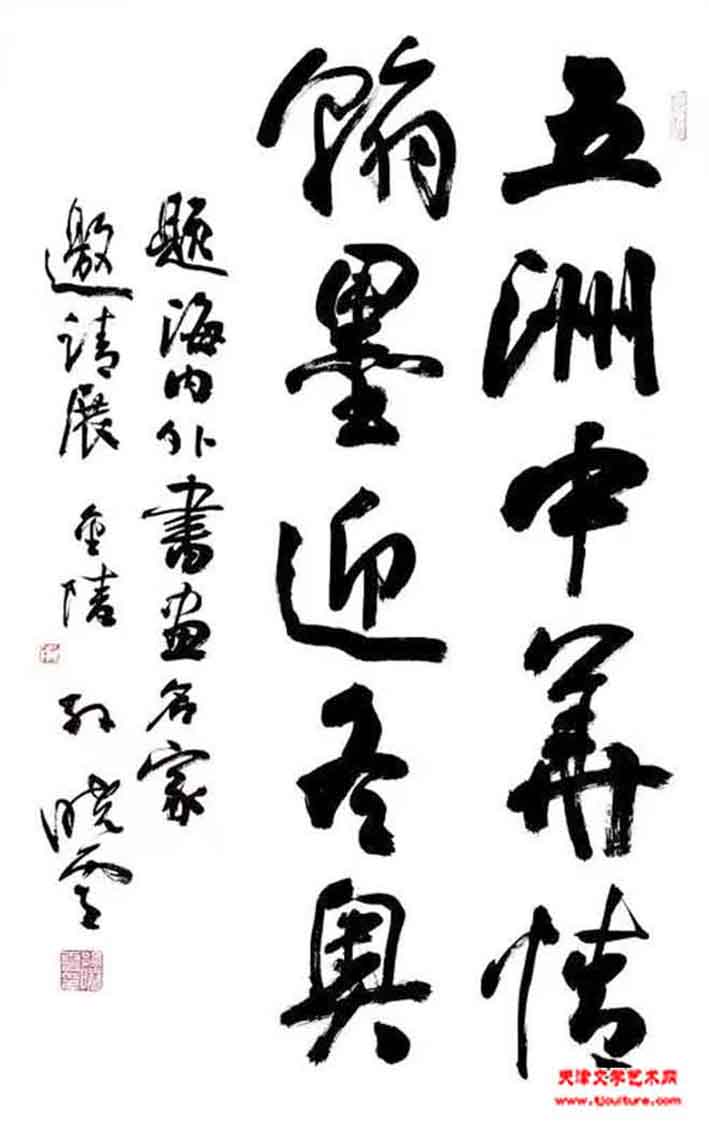 五洲中華情
翰墨迎冬奥
题海内外書画名家
邀请展 金陵 孙晓雲
天津文学艺术网
www.tjculture.com